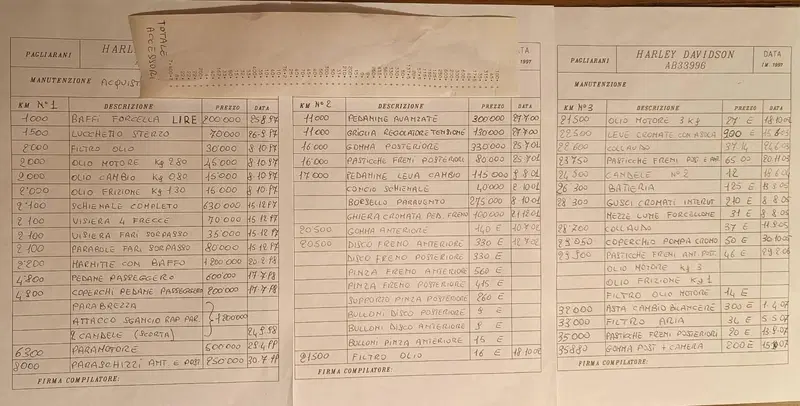 TOTALE
ACCESSORI
PAGLIARANI
HARL
MANUTENZIONE
ACQUIST
KM N°1 DESCRIZIONE PREZZO DATA
1000 BAFFI FORCELLA LIRE 200000 25 8 97
1500 LUCCHETTO STERZO 70000 26 9 97
2000 FILTRO OLIO 30000 8 10 97
2000 OLIO MOTORE Kg 2.80 45000 8 10 97
2000 OLIO CAMBIO Kg 0.80 15000 8 10 97
2000 OLIO FRIZIONE Kg 1.30 15000 8 10 97
2100 SCHIENALE COMPLETO 630000 15 12 97
2100 VISIERA 4 FRECCE 70000 15 12 97
2100 VISIERA FARI SORPASSO 35000 15 12 97
2100 PARABOLE FARI SORPASSO 80000 15 12 97
2200 MARMITTE CON BAFFO 1200000
4800 PEDANE PASSEGGERO 600000
4800 COPERCHI PEDANE PASSEGGERO 200000
PARABREZZA
ATTACCO SGANCIO RAP PAR.
2 CANDELE (SCORTA)
6300 PARAMOTORE 600000
8000 PARASCHIZZI ANT. E POST. 250000
FIRMA COMPILATORE:
TA
1997
KM N°2 DESCRIZIONE PREZZO DATA
11000 PEDAMINE AVANZATE 300000 27 7 00
11000 GRIGLIA REGOLATORE TENSIONE 130000 27 7 00
16000 GOMMA POSTERIORE 330000 25 7 01
16000 PASTICHE FRENI POSTERIORI 80000 25 7 01
17000 PEDAMINE LEVA CAMBIO 115000 9 8 01
CONCIO SCHIENALE 40000 2 10 01
BORSELLO PARAVENTO 275000 8 10 01
GHIERA CROMATA PED. FRENO 100000 21 12 01
20500 GOMMA ANTERIORE 140 E 10 7 02
20500 DISCO FRENO ANTERIORE 330 E 12 7 02
DISCO FRENO POSTERIORE 330 E
PINZA FRENO ANTERIORE 560 E
PINZA FRENO POSTERIORE 415 E
SUPPORTO PINZA POSTERIORE 260 E
BULLONI DISCO POSTERIORE 9 E
BULLONI DISCO ANTERIORE 9 E
BULLONI PINZA ANTERIORE 15 E
21500 FILTRO OLIO 16 E 18 10 02
FIRMA COMPILATORE:
PAGLIARANI
HARLEY DAVIDSON
AB33996
DATA
IM. 1997
MANUTENZIONE:
KM N°3 DESCRIZIONE PREZZO DATA
21500 OLIO MOTORE 3 Kg 27 E
22500 LEVE CROMATE CON ASOLA E
22600 COLLAUDO
23750 PASTICHE FRENI POST E ANT. 65 00
24500 CANDELE N°2 12
26300 BATTERIA 125 E
28300 GUSCI CROMATI INTERUT 210 E 8 8 05
MEZZE LUNE FORCELLONE 31 E 8 8 05
28200 COLLAUDO 37 E
29050 COPERCHIO POMPA CROMO 50 E 30 10 05
29300 PASTICHE FRENI ANT. POT. 46 E
OLIO MOTORE Kg 3
OLIO FRIZIONE Kg 1
FILTRO OLIO MOTORE 14 E
32000 ASTA CAMBIO BILANCERE 300 E 1 4 07
33000 FILTRO ARIA 34 E 5 5 07
35000 PASTICHE FRENI POSTERIORI 20 E
35880 GOMMA POST + CAMERA 200 E
FIRMA COMPILATORE: